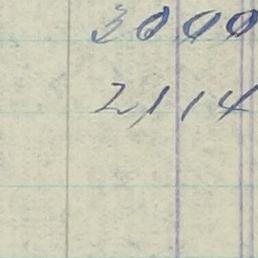 30 00
21 14